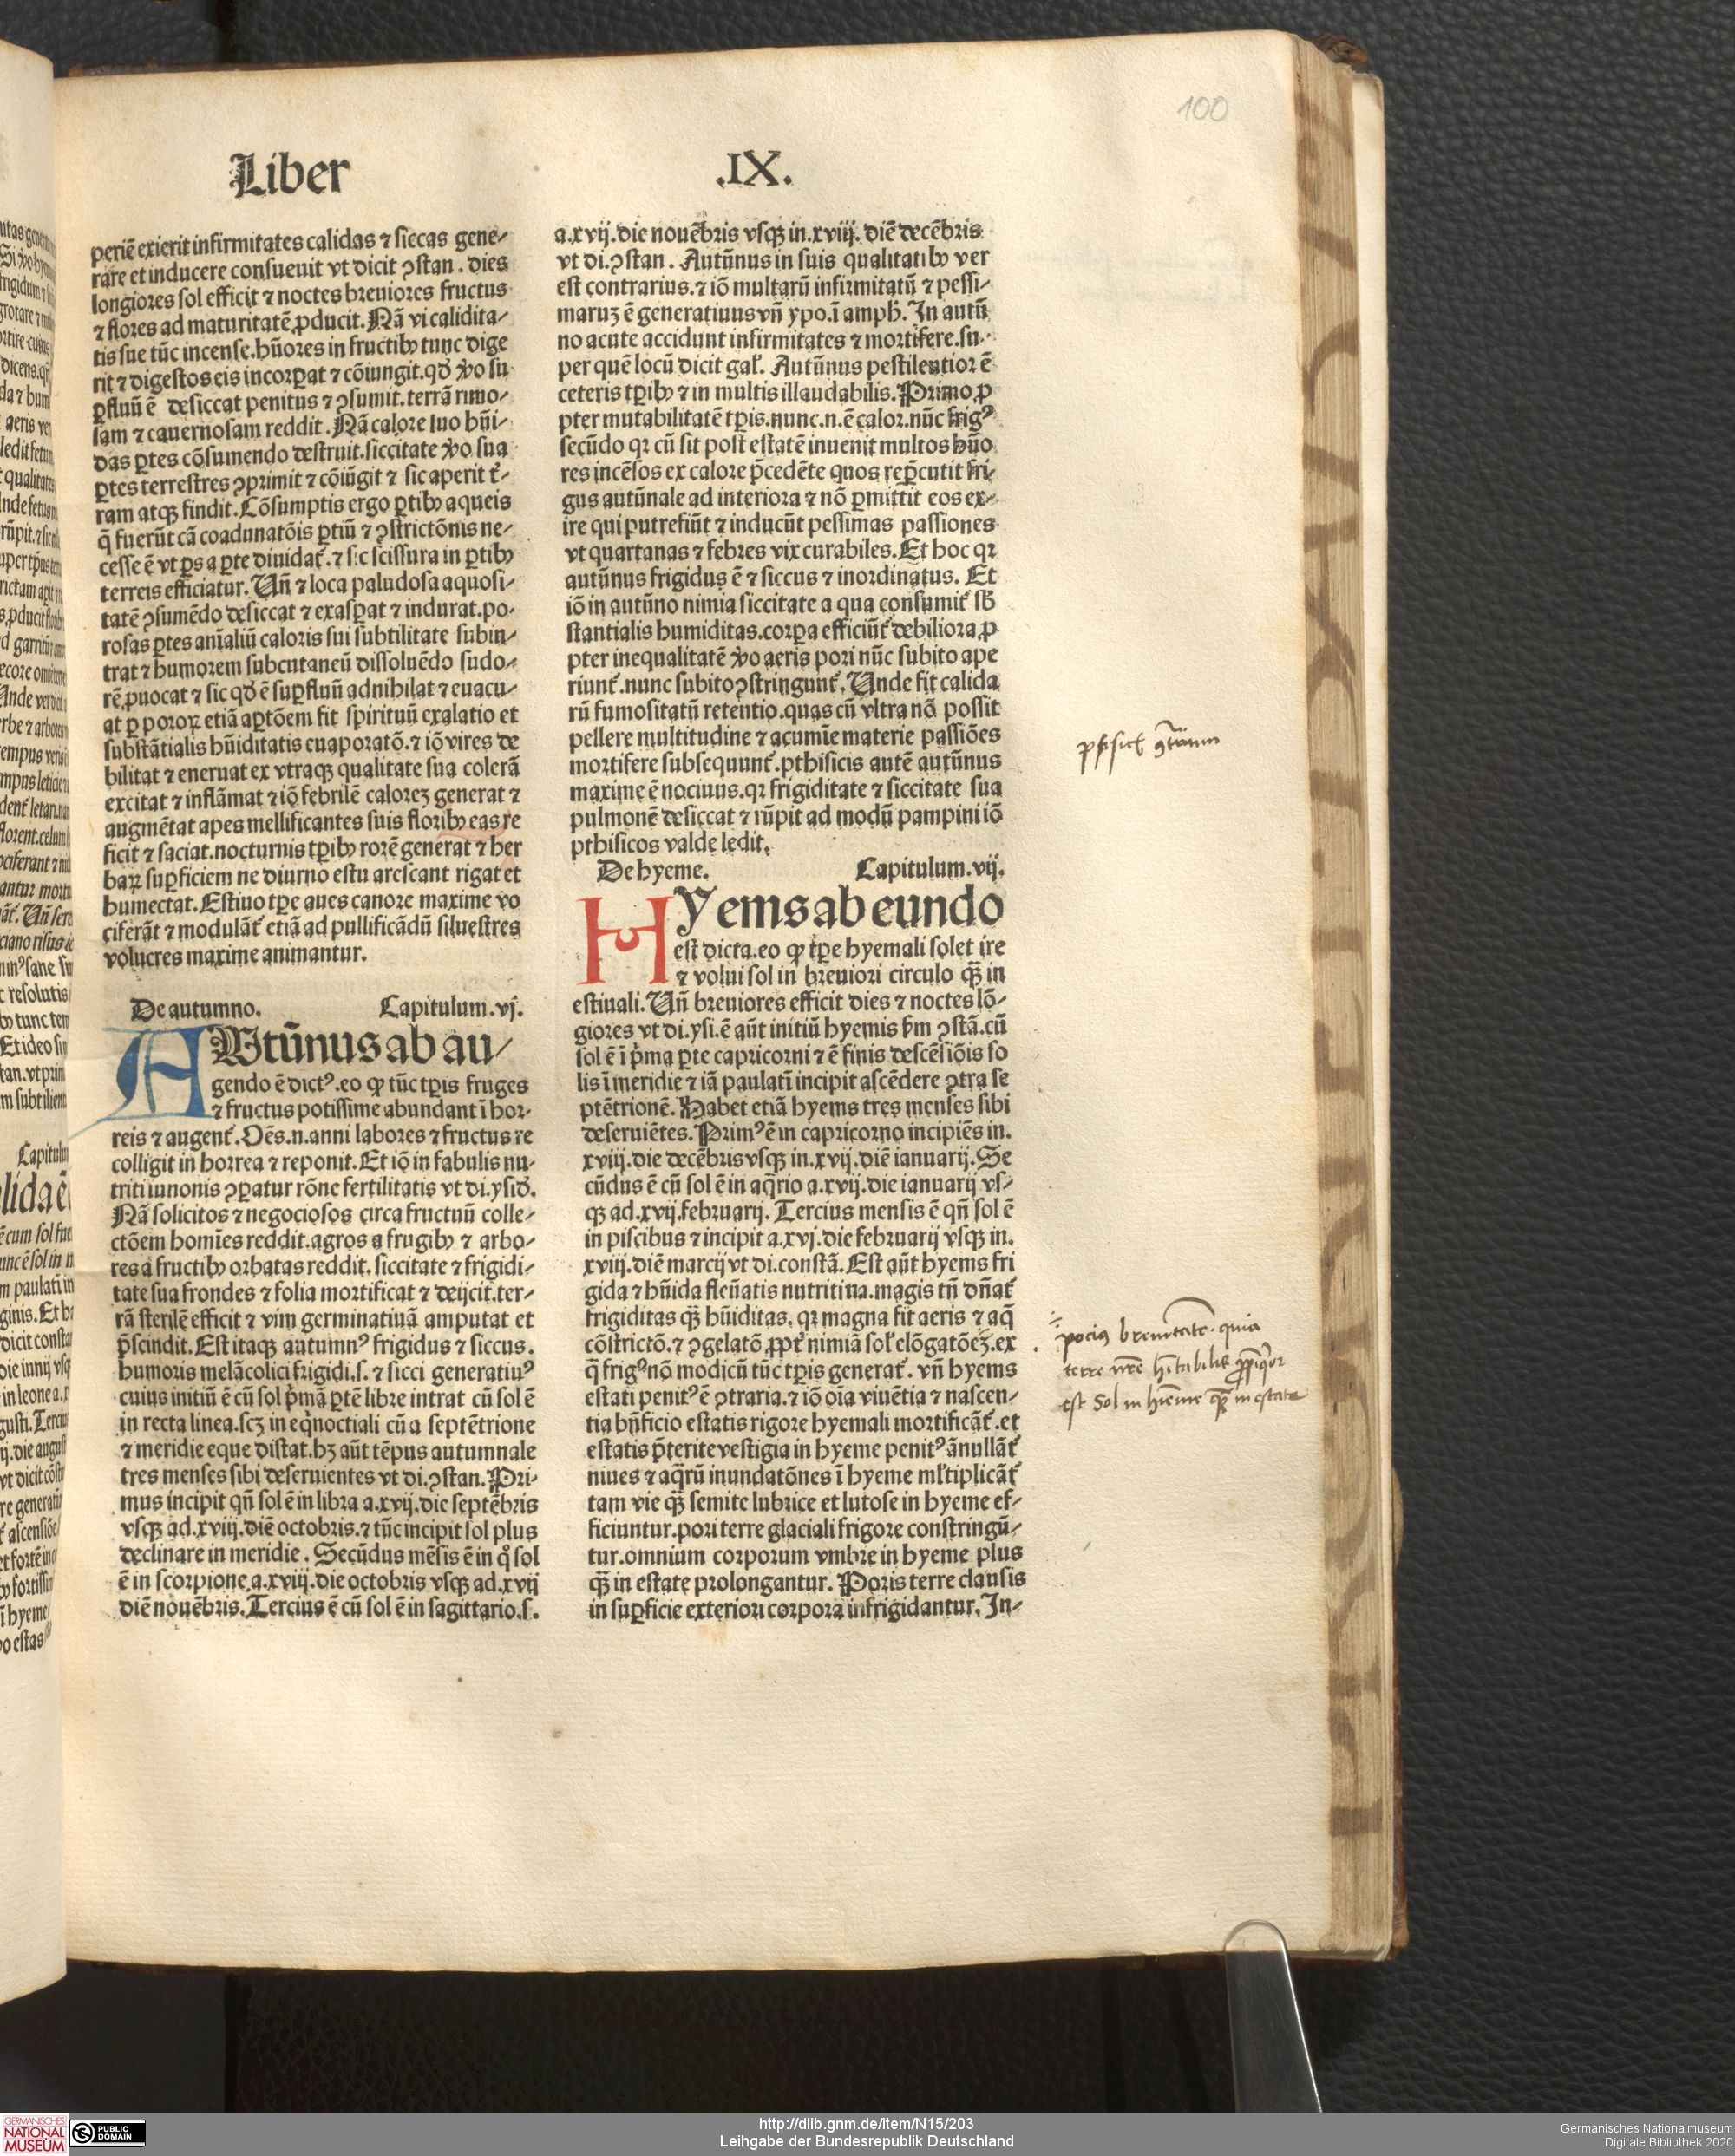 100
Liber .IX.
periē exierit infirmitates calidas ⁊ siccas gene⸗
rare et inducere consueuit vt dicit ꝯstan. dies
longiores sol efficit ⁊ noctes breuiores fructus
⁊ flores ad maturitatē ꝓducit. Nā vi calidita⸗
tis sue tūc incense. hūores in fructibꝰ tunc dige
rit ⁊ digestos eis incorꝑat ⁊ cōiungit. qd̄ ꝟo su
ꝑfluū ē desiccat penitus ⁊ ꝯsumit. terrā rimo⸗
sam ⁊ cauernosam reddit. Nā calore suo hūi⸗
das ꝑtes cōsumendo destruit. siccitate ꝟo sua
ꝑtes terrestres ꝯprimit ⁊ cōiūgit ⁊ sic aperit t̄⸗
ram atqꝫ findit. Cōsumptis ergo ꝑtibꝰ aqueis
q̄ fuerūt cā coadunatōis ꝑtiū ⁊ ꝯstrictōnis ne⸗
cesse ē vt ꝑs a ꝑte diuidat᷑. ⁊ sic scissura in ꝑtibꝰ
terreis efficiatur. Un̄ ⁊ loca paludosa aquosi⸗
tatē ꝯsumēdo desiccat ⁊ exasꝑat ⁊ indurat. po⸗
rosas ꝑtes aīaliū caloris sui subtilitate subin⸗
trat ⁊ humorem subcutaneū dissoluēdo sudo⸗
rē ꝓuocat ⁊ sic qd̄ ē suꝑfluū adnihilat ⁊ euacu⸗
at ꝑ pororꝝ etiā aꝑtōem fit spirituū exalatio et
substātialis hūiditatis euaporatō. ⁊ iō vires de
bilitat ⁊ eneruat ex vtraqꝫ qualitate sua colerā
excitat ⁊ inflāmat ⁊ iō febrilē caloreꝫ generat ⁊
augmētat apes mellificantes suis floribꝰ eas re
ficit ⁊ saciat. nocturnis tꝑibꝰ rorē generat ⁊ her
barꝝ suꝑficiem ne diurno estu arescant rigat et
humectat. Estiuo tꝑe aues canore maxime vo
ciferāt ⁊ modulāt᷑ etiā ad pullificādū siluestres
volucres maxime animantur.
De autumno. Capitulum. vj.
AUtūnus ab au⸗
gendo ē dictꝰ. eo ꝙ tūc tꝑis fruges
⁊ fructus potissime abundant ī hor⸗
reis ⁊ augent᷑. Oēs. n. anni labores ⁊ fructus re
colligit in horrea ⁊ reponit. Et iō in fabulis nu⸗
triti iunonis ꝯꝑatur rōne fertilitatis vt di. ysid̄.
Nā solicitos ⁊ negociosos circa fructuū colle⸗
ctōem homīes reddit. agros a frugibꝰ ⁊ arbo⸗
res a fructibꝰ orbatas reddit. siccitate ⁊ frigidi⸗
tate sua frondes ⁊ folia mortificat ⁊ deijcit. ter⸗
rā sterilē efficit ⁊ vim germinatiuā amputat et
p̄scindit. Est itaqꝫ autumnꝰ frigidus ⁊ siccus.
humoris melācolici frigidi. s. ⁊ sicci generatiuꝰ
cuius initiū ē cū sol p̄mā ꝑtē libre intrat cū sol ē
in recta linea. scꝫ in eq̄noctiali cū a septētrione
⁊ meridie eque distat. hꝫ aūt tēpus autumnale
tres menses sibi deseruientes vt di. ꝯstan. Pri⸗
mus incipit qn̄ sol ē in libra a. xvij. die septēbris
vsqꝫ ad. xviij. diē octobris. ⁊ tūc incipit sol plus
declinare in meridie. Secūdus mēsis ē in q̊ sol
ē in scorpione. a. xviij. die octobris vsqꝫ ad. xvij
diē nouēbris. Tercius ē cū sol ē in sagittario. s.
a. xvij. die nouēbris vsqꝫ in. xviij. diē decēbris
vt di. ꝯstan. Autūnus in suis qualitatibꝰ ver
est contrarius. ⁊ iō multarū infirmitatū ⁊ pessi⸗
maruꝫ ē generatiuus vn̄ ypo. ī amph̄. In autū
no acute accidunt infirmitates ⁊ mortifere. su⸗
per quē locū dicit gal᷑. Autūnus pestilentior ē
ceteris tꝑibꝰ ⁊ in multis illaudabilis. Primo ꝓ
pter mutabilitatē tꝑis. nunc. n. ē calor. nūc frigꝰ
secūdo qꝛ cū sit post estatē inuenit multos hūo
res incēsos ex calore p̄cedēte quos rep̄cutit fri⸗
gus autūnale ad interiora ⁊ nō ꝑmittit eos ex⸗
ire qui putrefiūt ⁊ inducūt pessimas passiones
vt quartanas ⁊ febres vix curabiles. Et hoc qꝛ
autūnus frigidus ē ⁊ siccus ⁊ inordinatus. Et
iō in autūno nimia siccitate a qua consumit᷑ sb̄
stantialis humiditas. corꝑa efficiūt᷑ debiliora ꝓ
pter inequalitatē ꝟo aeris pori nūc subito ape
riunt᷑. nunc subito ꝯstringunt᷑. Unde fit calida
rū fumositatū retentio. quas cū vltra nō possit
pellere multitudine ⁊ acumīe materie passiōes
mortifere subsequunt᷑. pthisicis autē autūnus
maxime ē nociuus. qꝛ frigiditate ⁊ siccitate sua
pulmonē desiccat ⁊ rūpit ad modū pampini iō
pthisicos valde ledit.
De hyeme. Capitulum. vij.
HYems ab eundo
est dicta. eo ꝙ tꝑe hyemali solet ire
⁊ volui sol in breuiori circulo q̄ꝫ in
estiuali. Un̄ breuiores efficit dies ⁊ noctes lō⸗
giores vt di. ysi. ē aūt initiū hyemis ẜm ꝯstā. cū
sol ē ī p̄ma ꝑte capricorni ⁊ ē finis descēsiōis so
lis ī meridie ⁊ iā paulatī incipit ascēdere ꝯtra se
ptētrionē. Habet etiā hyems tres menses sibi
deseruiētes. Primꝰ ē in capricorno incipiēs in.
xviij. die decēbris vsqꝫ in. xvij. diē ianuarij. Se
cūdus ē cū sol ē in aq̄rio a. xvij. die ianuarij vs⸗
qꝫ ad. xvij. februarij. Tercius mensis ē qn̄ sol ē
in piscibus ⁊ incipit a. xvj. die februarij vsqꝫ in.
xviij. diē marcij vt di. constā. Est aūt hyems fri
gida ⁊ hūida fleūatis nutritiua. magis tn̄ dn̄at᷑
frigiditas q̄ꝫ hūiditas. qꝛ magna fit aeris ⁊ aq̄
cōstrictō. ⁊ ꝯgelatō ꝓpt᷑ nimiā sol᷑ elōgatōeꝫ. ex
q̄ frigꝰ nō modicū tūc tꝑis generat᷑. vn̄ hyems
estati penitꝰ ē ꝯtraria. ⁊ iō oīa viuētia ⁊ nascen⸗
tia bn̄ficio estatis rigore hyemali mortificāt᷑. et
estatis p̄terite vestigia in hyeme penitꝰ ānullāt᷑
niues ⁊ aq̄rū inundatōnes ī hyeme ml̄tiplicāt᷑
tam vie q̄ꝫ semite lubrice et lutose in hyeme ef⸗
ficiuntur. pori terre glaciali frigore constringū⸗
tur. omnium corporum vmbre in hyeme plus
q̄ꝫ in estate prolongantur. Poris terre clausis
in suꝑficie exteriori corpora infrigidantur. In⸗
ꝯtrariū
pociꝰ breuitatē. quia
terre nr̄e hītabilis ꝓpīqꝛ
est Sol in hieme q̄ꝫ in estate
http://dlib.gnm.de/item/N15/203
Leihgabe der Bundesrepublik Deutschland
GERMANISCHES
NATIONAL
MUSEUM
PUBLIC
DOMAIN
Germanisches Nationalmuseum
Digitale Bibliothek 2020